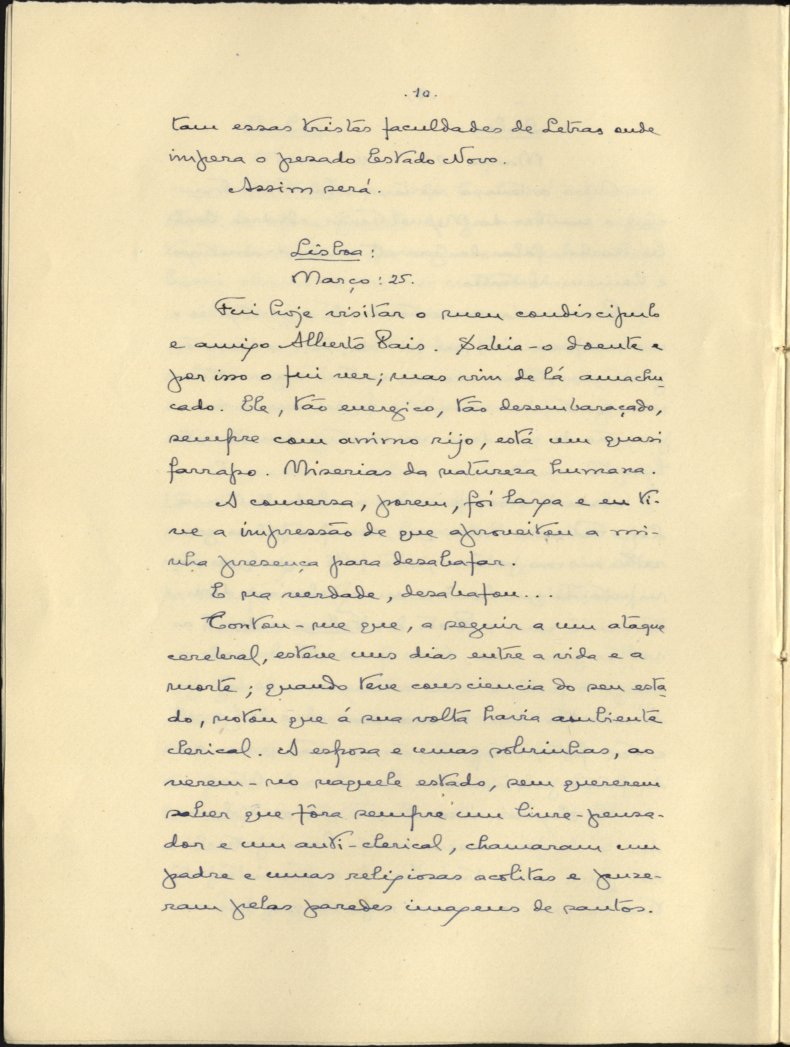 .10.
tam essas tristes faculdades de Letras onde
impera o pesado Estado Novo.
Assim será.
Lisboa:
Março: 25.
Fui hoje visitar o meu condiscipulo
e amigo Alberto Pais. Sabia-o doente e
por isso o fui ver; mas vim de lá amachu-
cado. Ele, tão energico, tão desembaraçado,
sempre com animo rijo, está um quasi
farrapo. Miserias da natureza humana.
A conversa, porem, foi larga e eu ti-
ve a impressão de que aproveitou a mi-
nha presença para desabafar.
E na verdade, desabafou...
Contou-me que, a seguir a um ataque
cerebral, esteve uns dias entre a vida e a
morte; quando teve consciencia do seu esta-
do, notou que á sua volta havia ambiente
clerical. A esposa e umas sobrinhas, ao
verem-no naquele estado, sem quererem
saber que fôra sempre um livre-pensa-
dor e um anti-clerical, chamaram um
padre e umas religiosas acolitas e puze-
ram pelas paredes imagens de santos.